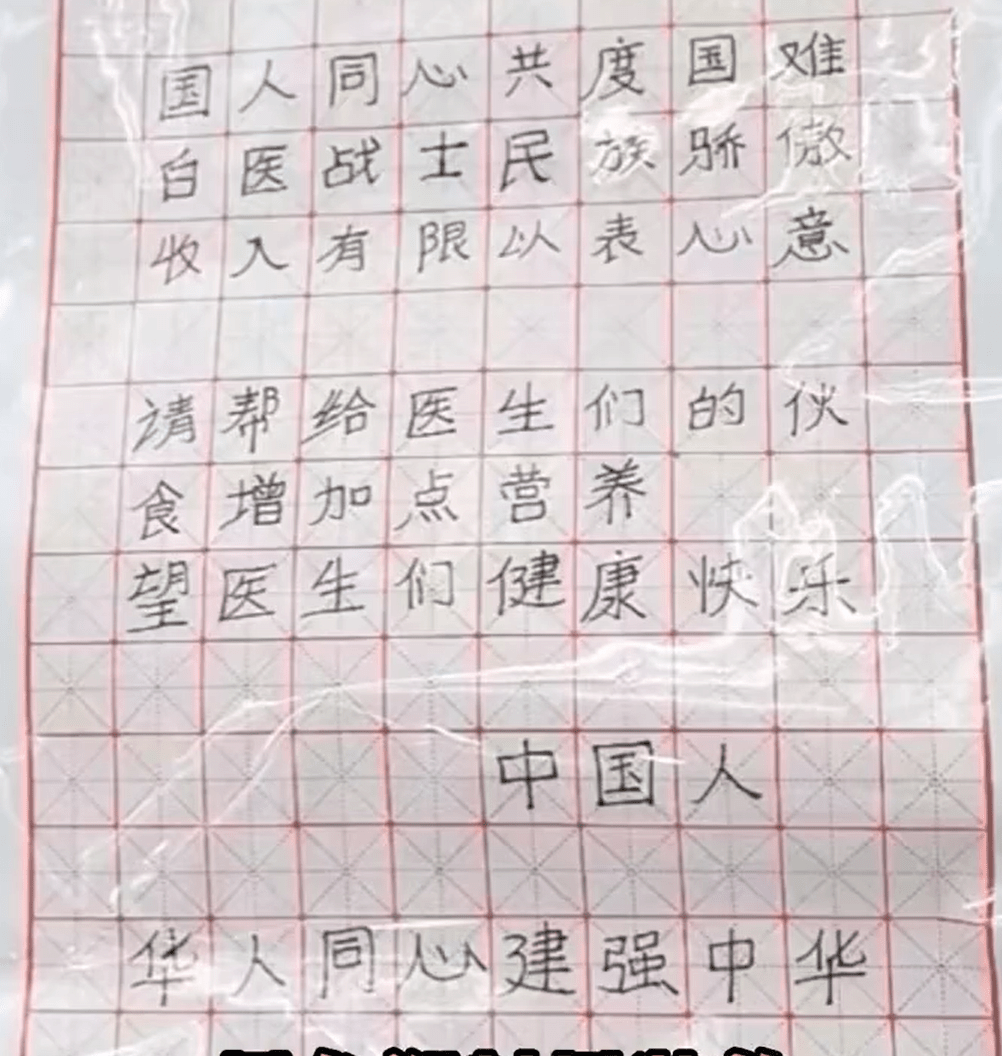 国人同心共度国难
白医战士民族骄傲
收入有限以表心意
请帮给医生们的伙
食增加点营养
望医生们健康快乐
中国人
华人同心建强中华